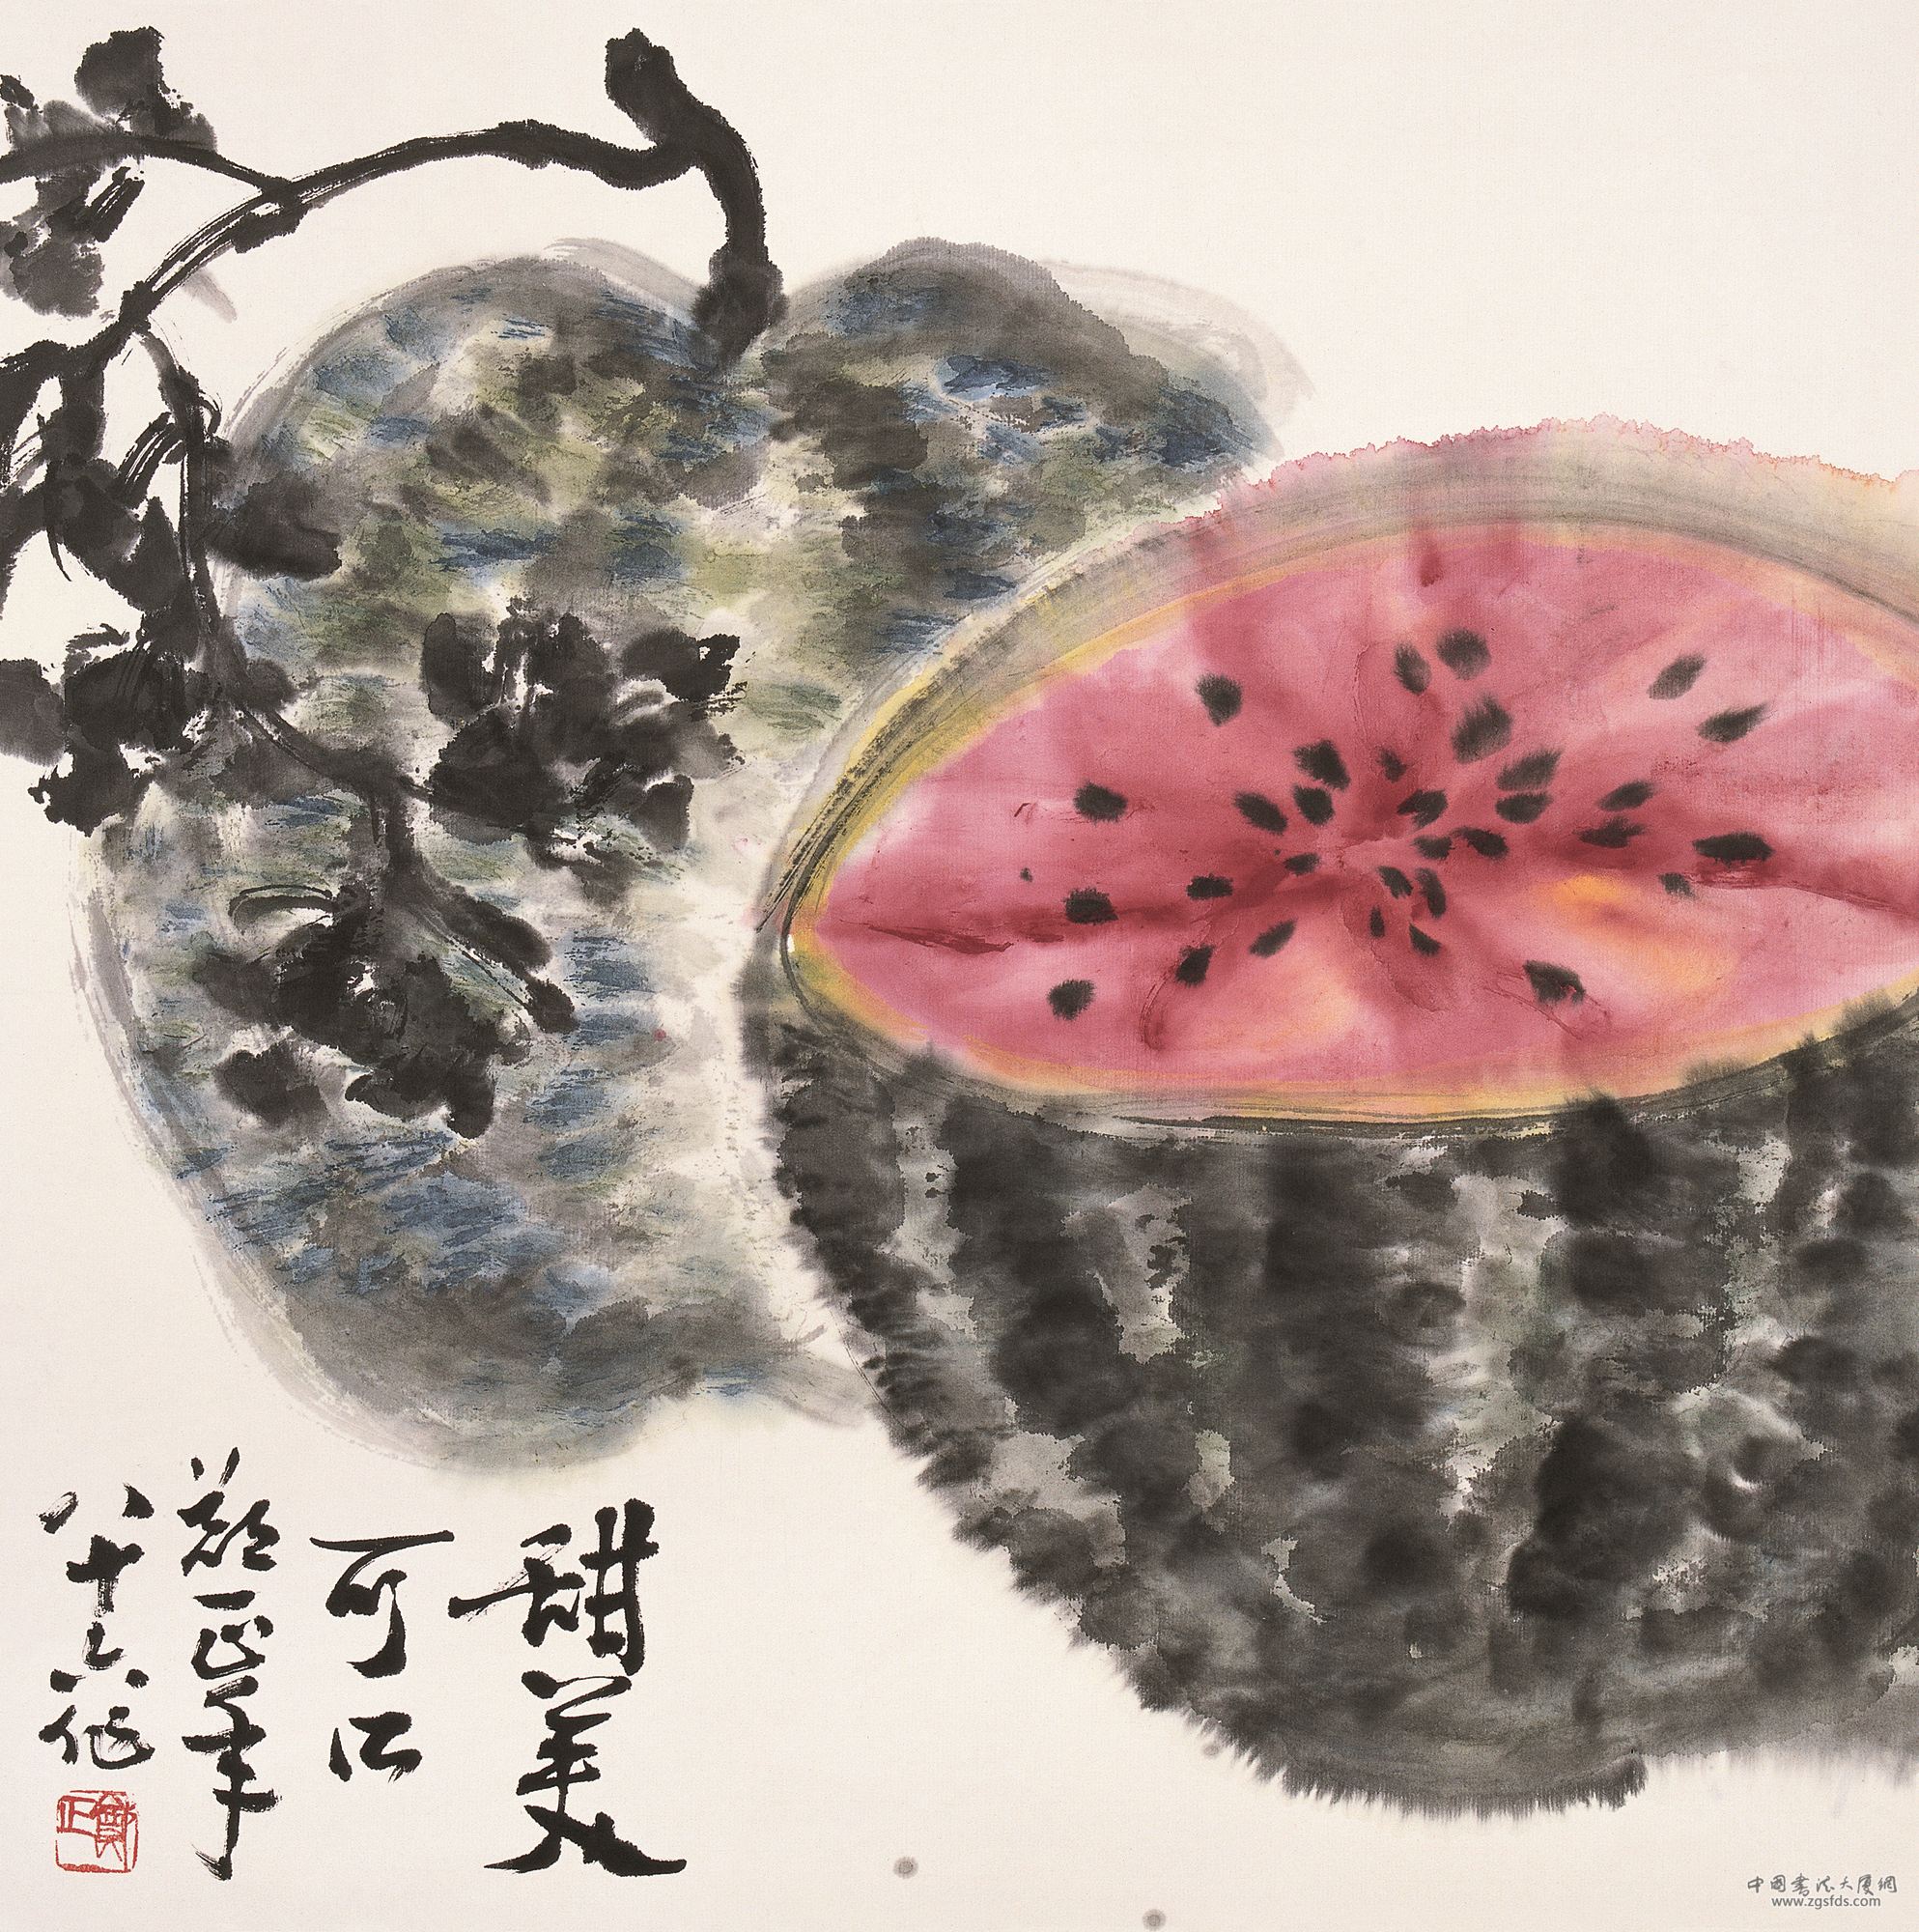 甜美
可口
鄭正年
八十六作
鄭正
中国书法大厦网
www.zgsfds.com